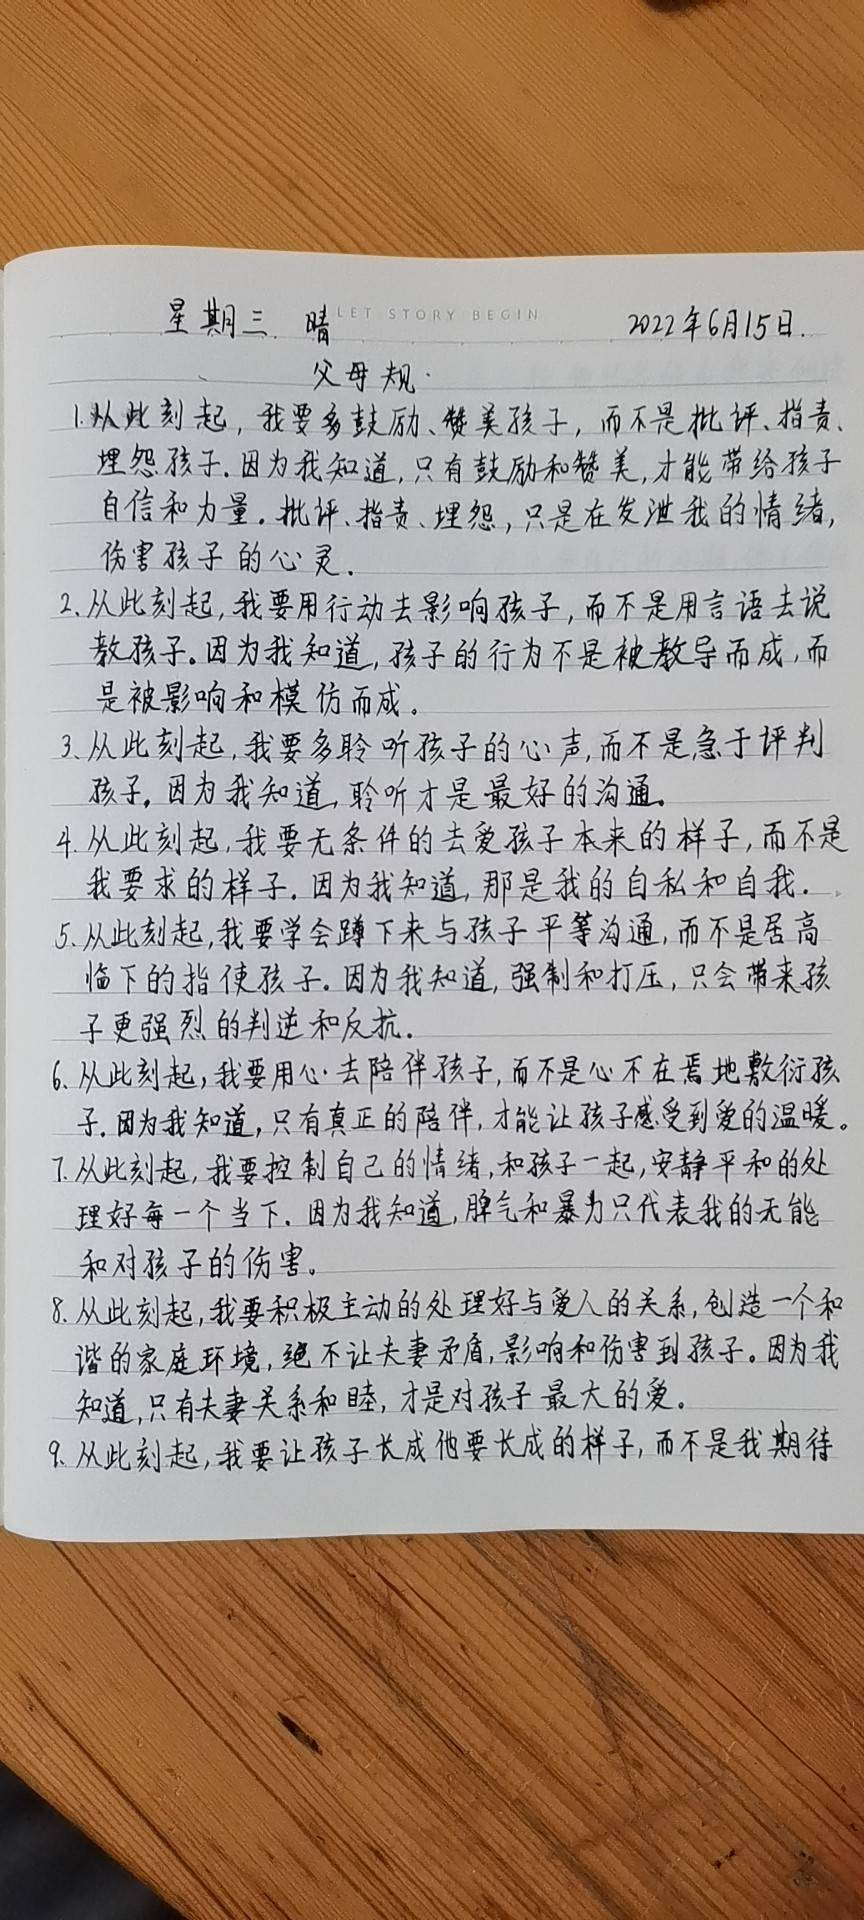 LET STORY BEGIN
星期三 晴 2022年6月15日.
父母规.
1.从此刻起,我要多鼓励、赞美孩子,而不是批评、指责、
埋怨孩子.因为我知道,只有鼓励和赞美,才能带给孩子
自信和力量。批评、指责、埋怨,只是在发泄我的情绪,
伤害孩子的心灵.
2.从此刻起,我要用行动去影响孩子,而不是用言语去说
教孩子。因为我知道,孩子的行为不是被教导而成,而
是被影响和模仿而成。
3.从此刻起,我要多聆听孩子的心声,而不是急于评判
孩子。因为我知道,聆听才是最好的沟通。
4.从此刻起,我要无条件的去爱孩子本来的样子,而不是
我要求的样子.因为我知道,那是我的自私和自我.
5.从此刻起,我要学会蹲下来与孩子平等沟通,而不是居高
临下的指使孩子。因为我知道,强制和打压,只会带来孩
子更强烈的判逆和反抗.
6.从此刻起,我要用心去陪伴孩子,而不是心不在焉地敷衍孩
子.因为我知道,只有真正的陪伴,才能让孩子感受到爱的温暖。
7.从此刻起,我要控制自己的情绪,和孩子一起,安静平和的处
理好每一个当下.因为我知道,脾气和暴力只代表我的无能
和对孩子的伤害。
8.从此刻起,我要积极主动的处理好与爱人的关系,创造一个和
谐的家庭环境,绝不让夫妻矛盾,影响和伤害到孩子。因为我
知道,只有夫妻关系和睦,才是对孩子最大的爱。
9.从此刻起,我要让孩子长成他要长成的样子,而不是我期待